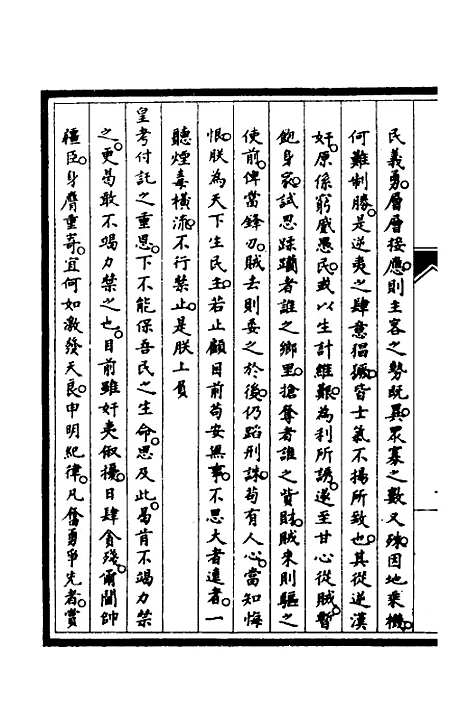 民義勇層層接應則主客之勢既異眾寡之數又殊因地乘機
何難制勝是逆夷之肆意猖獗皆士氣不揚所致也其從逆漢
奸原係窮蹙愚民或以生計維艱為利所誘遂至甘心從賊暫
飽身家試思蹂躪者誰之鄉里搶奪者誰之貲財賊來則驅之
使前俾當鋒刃賊去則委之於後仍蹈刑誅苟有人心當知悔
恨朕為天下生民主若止顧目前苟安無事不思大者遠者一
聽煙毒橫流不行禁止是朕上負
皇考付託之重思下不能保吾民之生命思及此曷肯不竭力禁
之更曷敢不竭力禁之也目前雖奸夷俶擾日肆貪殘爾閫帥
疆臣身膺重寄宜何如激發天良申明紀律凡奮勇爭先者賞